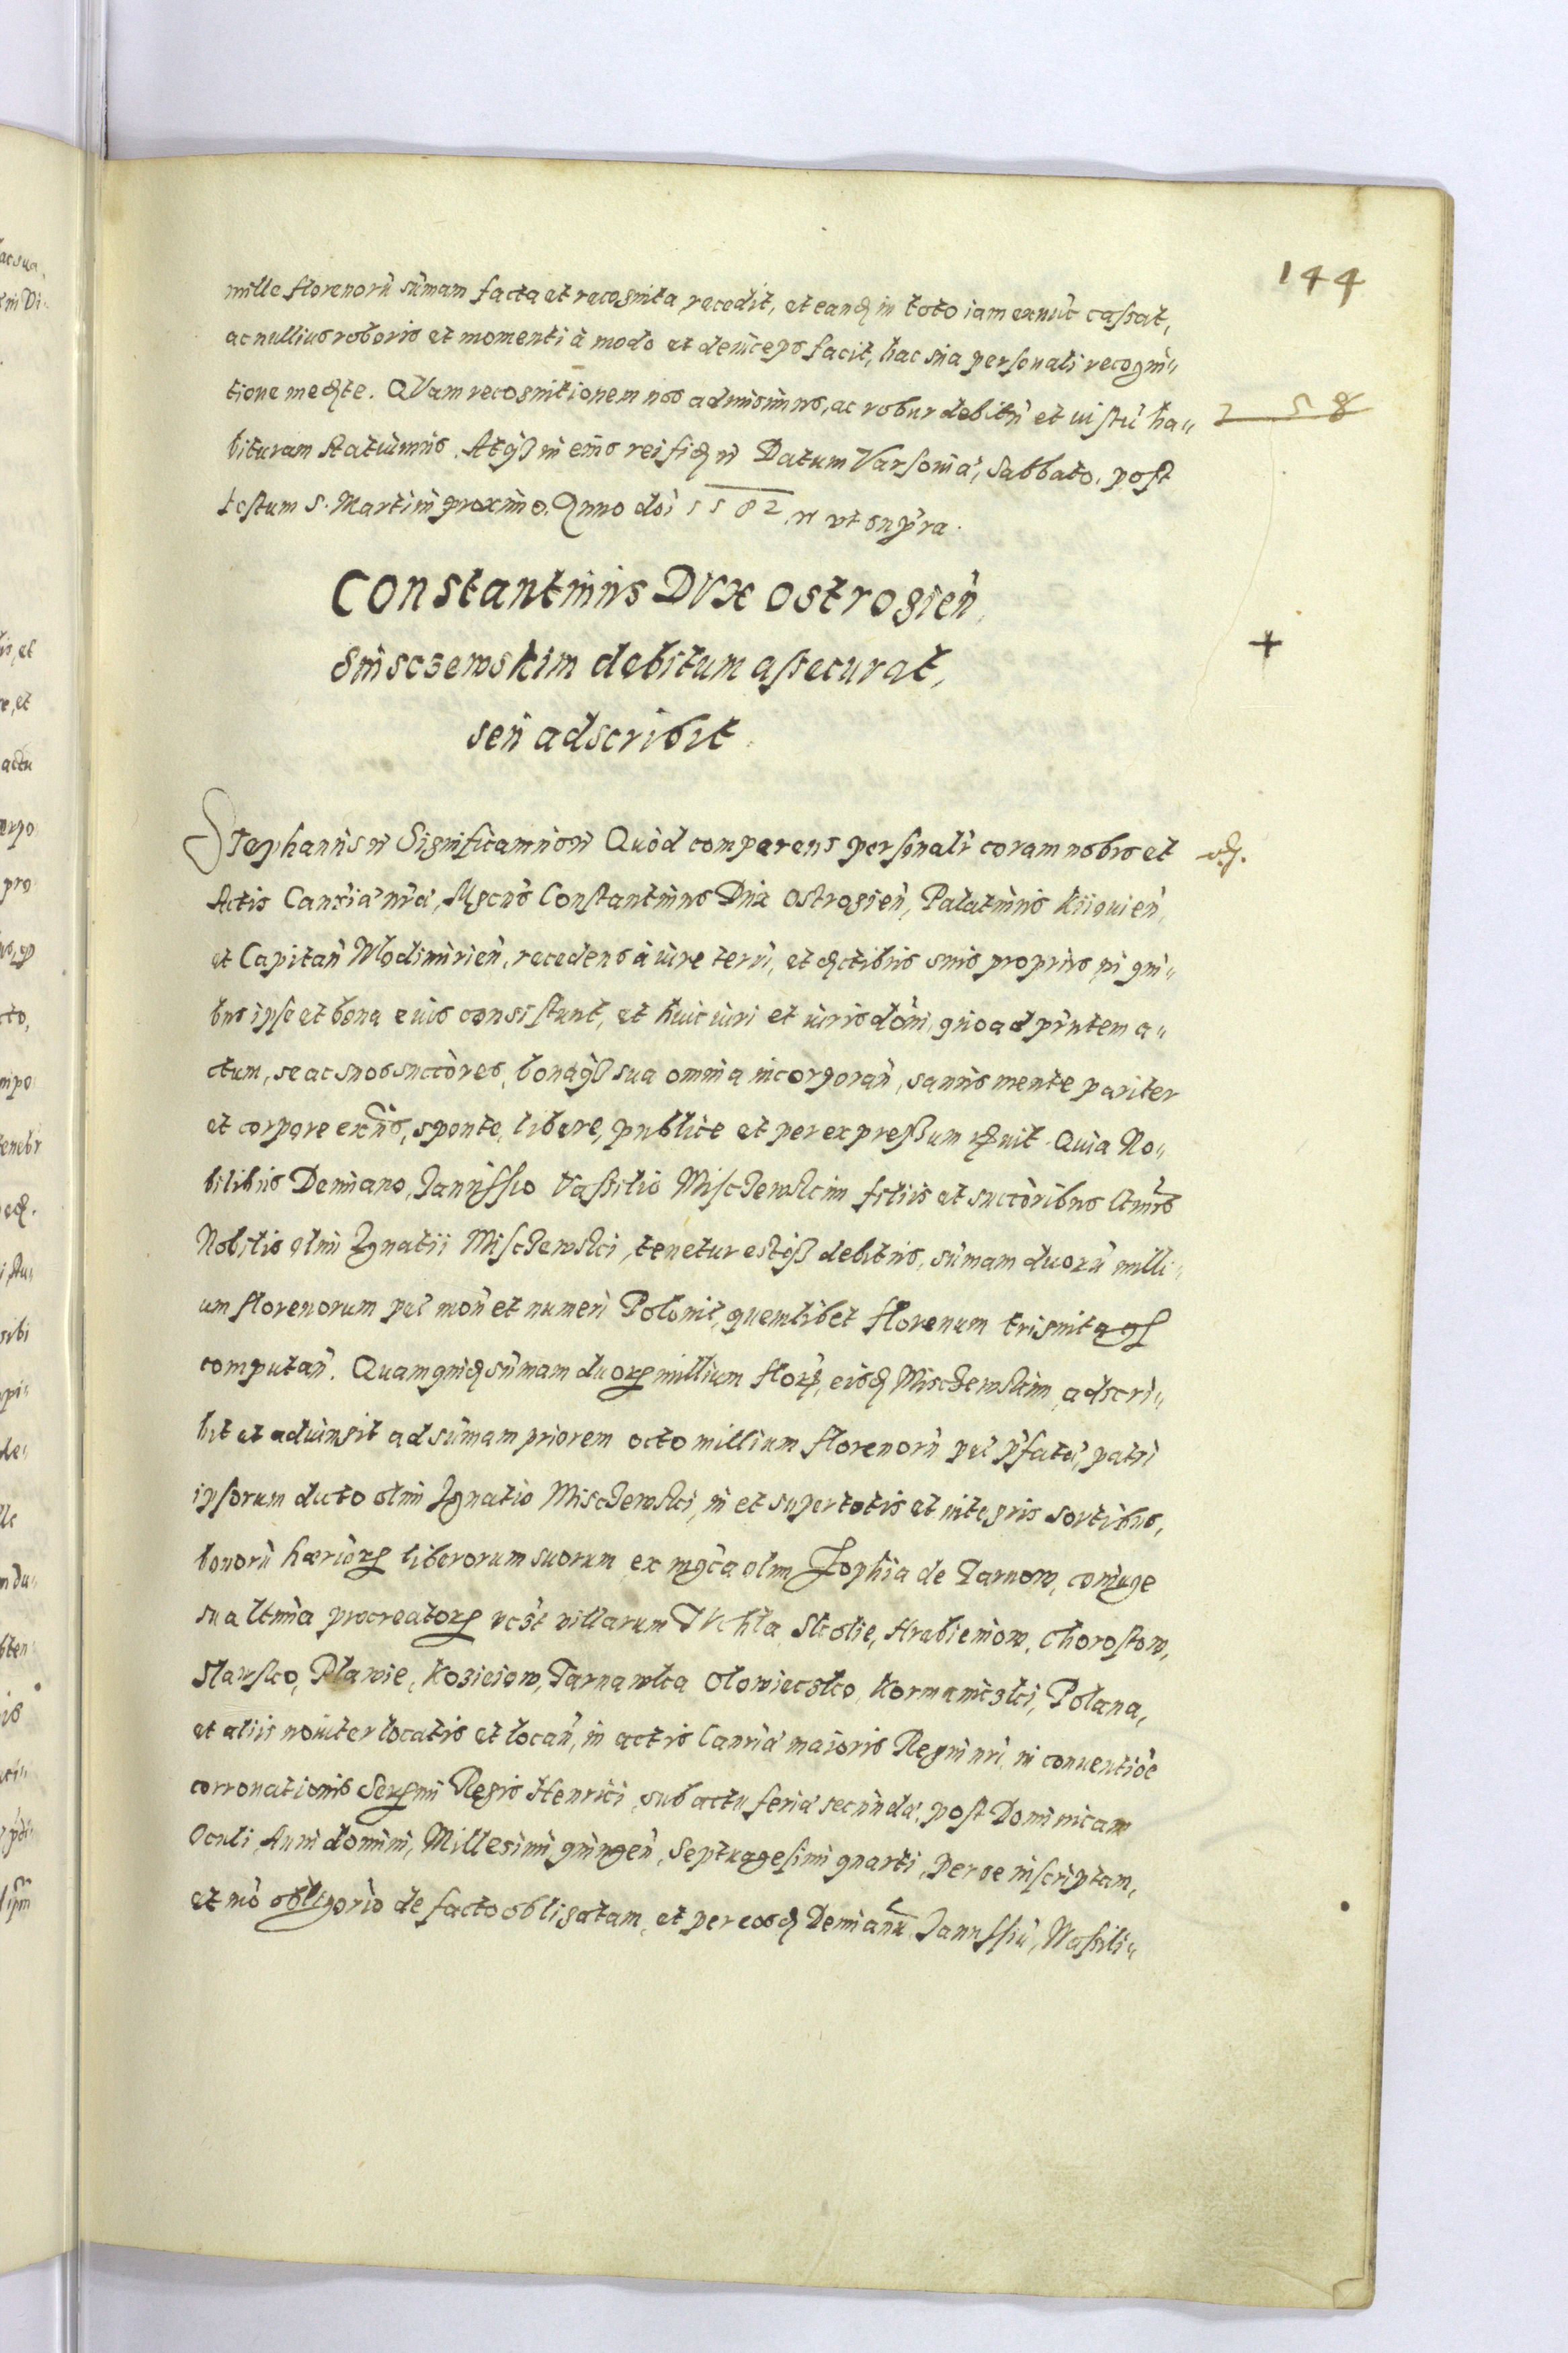 144
mille florenorũ sũmam facta et recognita, recedit, et eandẽ in toto iam exnũc cassat,
ac nullius roboris et momenti à modo et deinceps facit, hac sua personali recogni„
tione medte. QVam recognitionem nos admisimus, ac robur debitũ et iustũ ha„
258
bituram statuimus. Atq̃ in eius rei fidẽ Datum Varsouiæ, Sabbato, post
festum S. Martini proximo. Anno dñi 1582 vt supra.
Constantinus DVX Ostrogień,
Misczewskim debitum assecurat,
seu adscribit.
Stephanus Significamus Quòd comparens personalr̃ coram nobis et
Actis Cancria nr̃a, Mgcus Constantinus Dux Ostrogień, Palatinus Kiiouień,
et Capitań Wlodimirień, recedens à iure terrũ, et dctibus suis proprijs, in qui„
bus ipse et bona eius consistunt, et huic iuri et iurisdoni, quoad pr̃ntem a„
ctum, se ac suos succòres, bonaq̃ sua omnia incorporań, sanus mente pariter
et corpore exñs, sponte, libere, publice et per expressum Quia No„
bilibus Demiano, Janussio Vassilio Misczewskim filijs et succoribus
Nobilis olim Ignatii Misczewski, tenetur estq̃ debitus, sũmam duorũ milli„
um florenorum pec moń et numeri Polonic, quemlibet florenum
computań. Quamquidẽ sũmam duorum millium floru, eisdẽ Misczewskim, adscri„
bit et adiungit ad sũmam priorem octo millium florenorũ pec p̃fatæ, patri
ipsorum dicto olim Ignatio Misczewski, in et super totis et integris sortibus,
bonorũ hæriorum liberorum suorum ex mgca olim Zophia de Tarnow, coniuge
sua ltima procreatorum vczt villarum TVchla Skolie, Hrabieniow, Chorostow,
Slawsko, Plawie, Kozieiow, Tarnawka Olowieczko, Kormaniczki, Polana,
et aliis nouiter locatis et locań, in actis Canria maioris Regni nri, in conuentiõe
corronationis Sermi Regis Henrici, sub actu feria secunda, post Dominicam
Oculi, Anni domini, Millesimi, quingeń, Septuagesimi quarti, per se inscriptam,
et mò obligorio de facto obligatam, et per eosdẽ Demianũ, Janussiũ, Wassili„